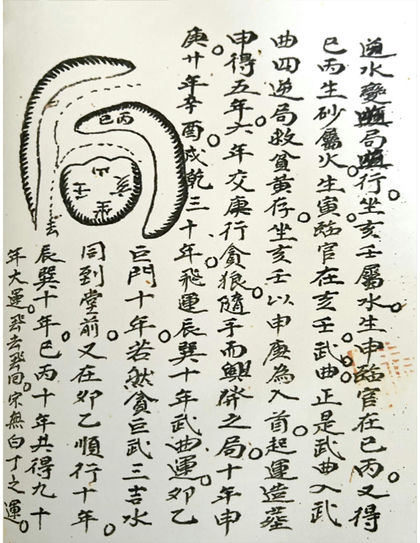 逆水變順局順行坐。亥壬屬水生申臨官在巳丙。又得
巳丙生砂屬火生寅。臨官在亥壬。武曲。正是武曲入武
曲四逆局救貧黃存。坐亥壬以申庚為入首。起運造塟
申得五年。六年交庚行貪狼。隨手而興發之局。十年申
庚廿年辛酉戌乾三十年。飛運辰巽十年武曲運。卯乙
巨門十年。若然貪巨武三吉水
同到堂前。又在卯乙順行十年。
辰巽十年。巳丙十年。共得九十
年大運。去回。家無白丁之運。
丙巳
山
壬
亥
去